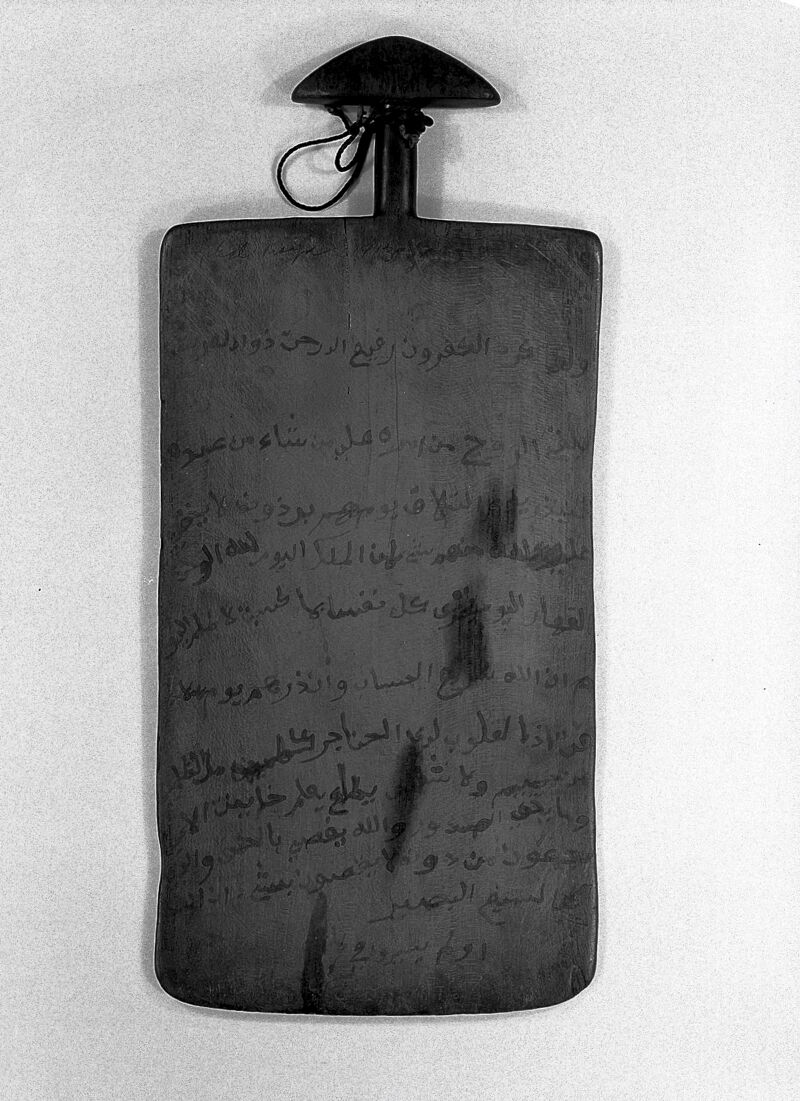 ولو كره الكفرون رفيع الدرجت ذوا لعرش
يلقي الروح من امره على من يشاء من عباده
لينذر يوم التلاق يوم هم برزون لا يخفى
على الله منهم شيء لمن الملك اليوم لله
القهار اليوم تجزى كل نفس بما كسبت لا ظلم اليو
م ان الله سريع الحساب وأنذرهم يوم الا
زفة اذا لقلوب لدى الحناجر كاظمين ما للظا
حميم ولا شفيع يطاع يعلم خاينة الا
وما تخفى الصدور والله يقضي بالحق والذين
يدعون من دونه لا يقضون بشيء ان الله
السميع البصير
اولم يسيروا في